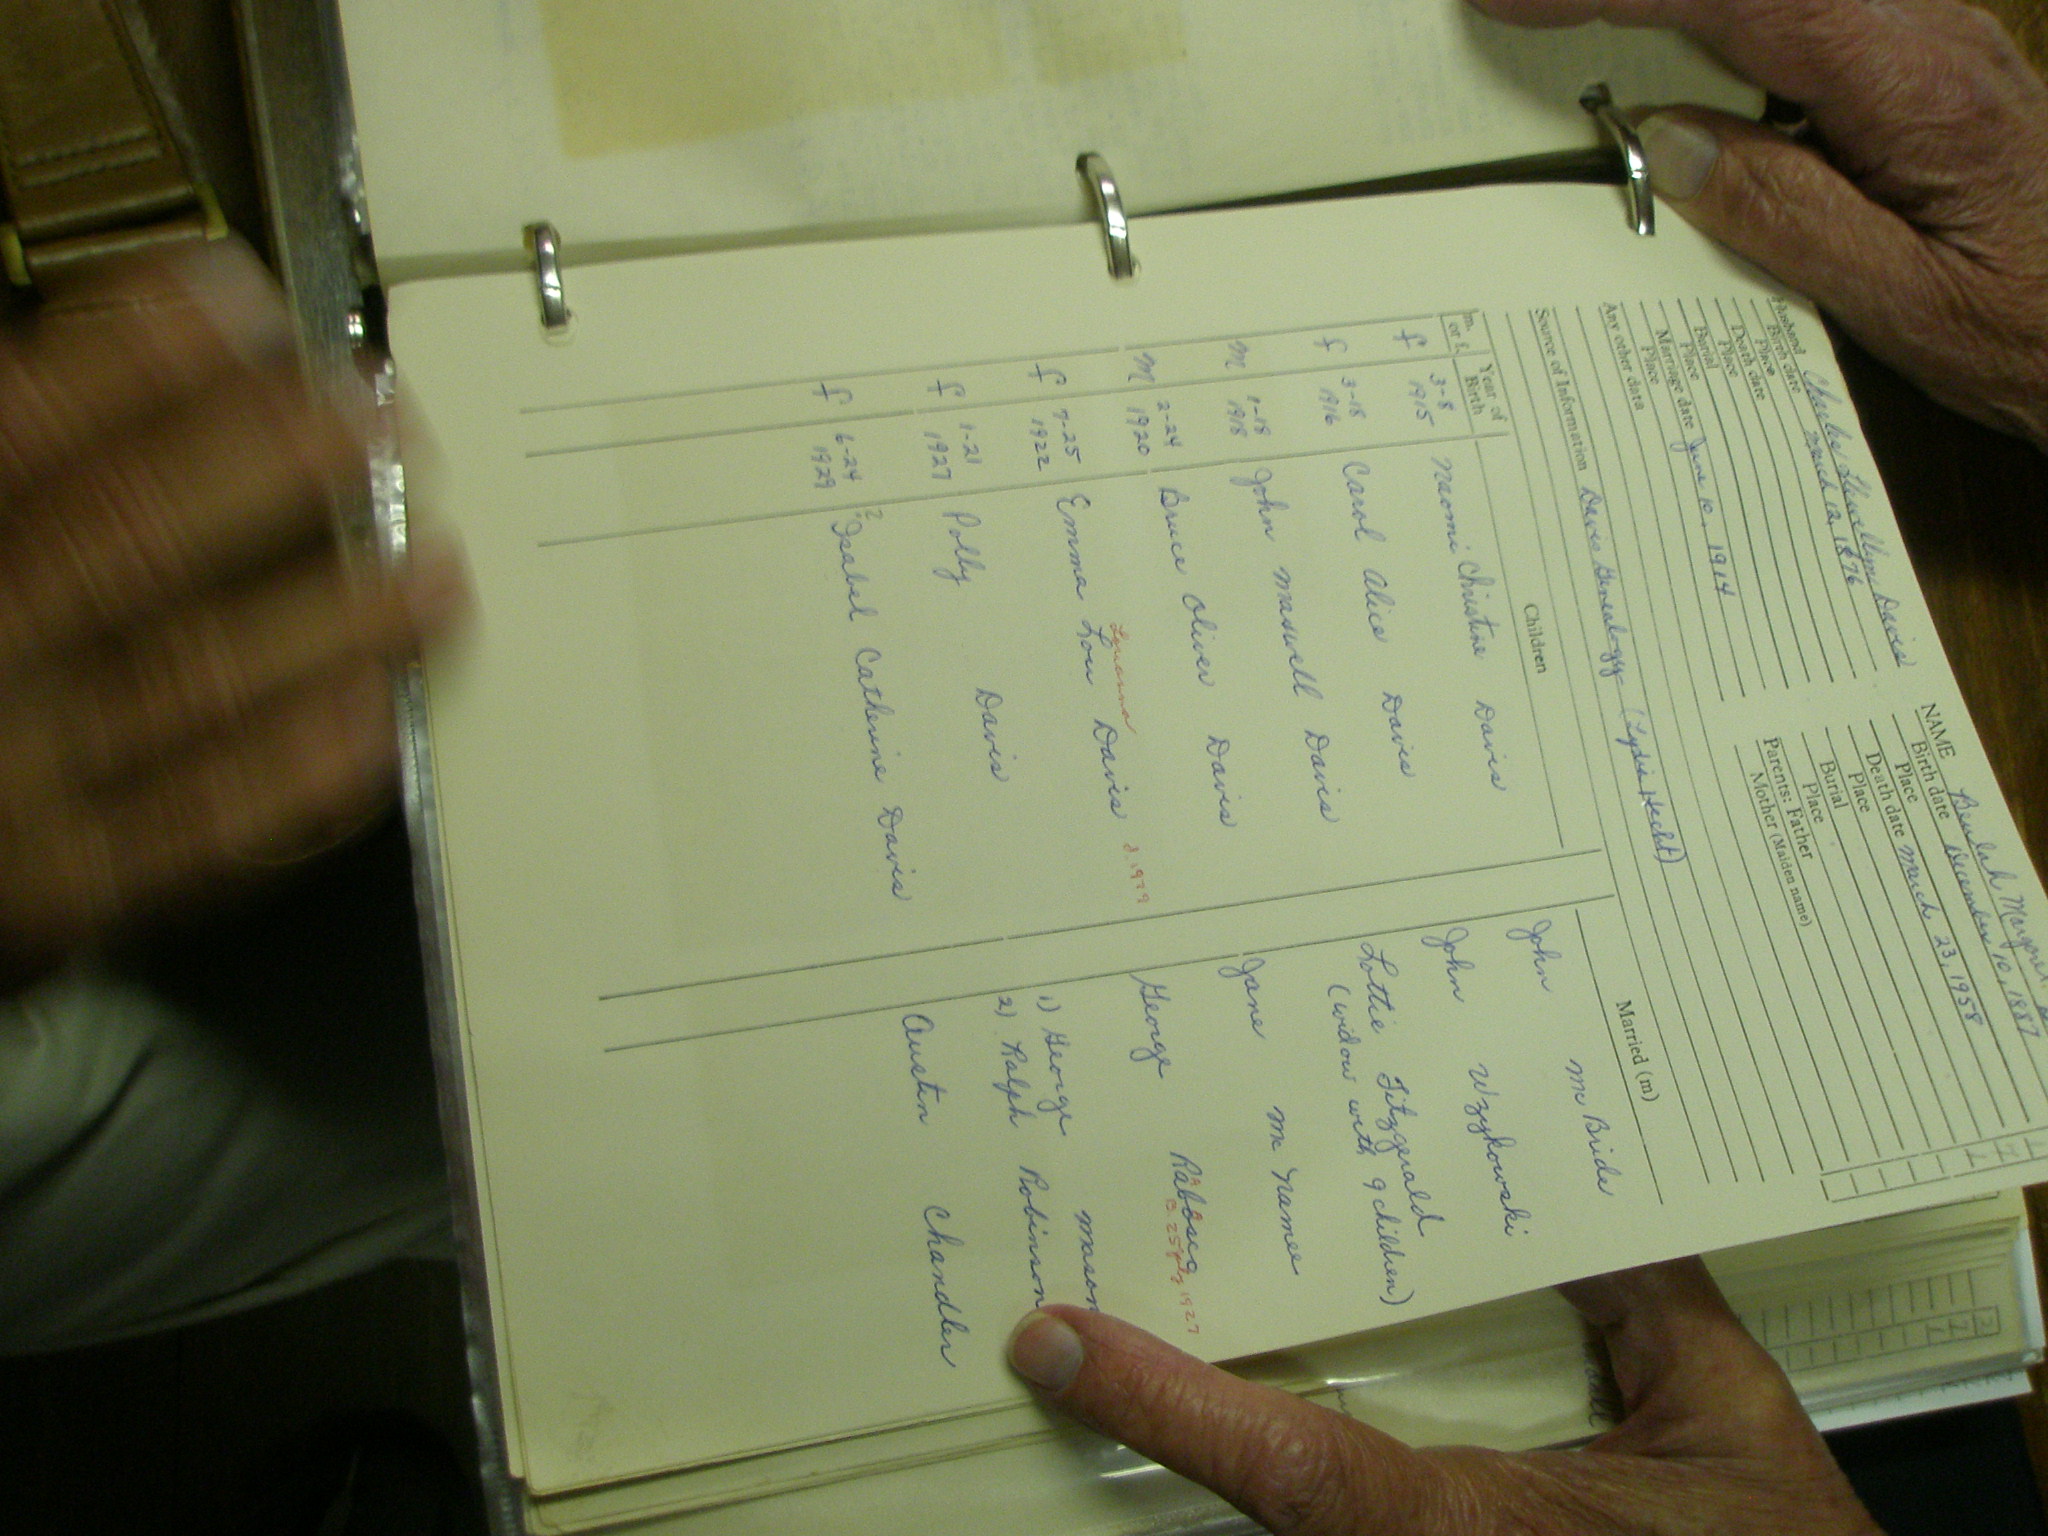 Husband Charles Llewellyn Davis
Birth date March 12, 1876
Place
Death date
Place
Burial
Place
Marriage date June 10, 1914
Place
Any other data
NAME Beulah
Birth date December 10, 1887
Place
Death date March 23, 1958
Place
Burial
Place
Parents: Father
Mother (Maiden name)
Source of Information Davis Genealogy (Lydia Hecht)
m. or f. Year of Birth Children Married (m)
f 3-8 1915 Naomi Christine Davis John McBride
f 3-18 1916 Carol Alice Davis John Wzykowski
m 1-18 1918 John Maxwell Davis Lottie Fitzgerald
(widow with 9 children)
m 2-24 1920 Bruce Oliver Davis Jane McNamee
Louanna
f 7-25 1922 Emma Lou Davis d. 1979 George
f 1-21 1927 Polly Davis 1) George Mason
2) Ralph Robinson
f 6-24 1929 ? Isabel Catherine Davis Austin Chandler